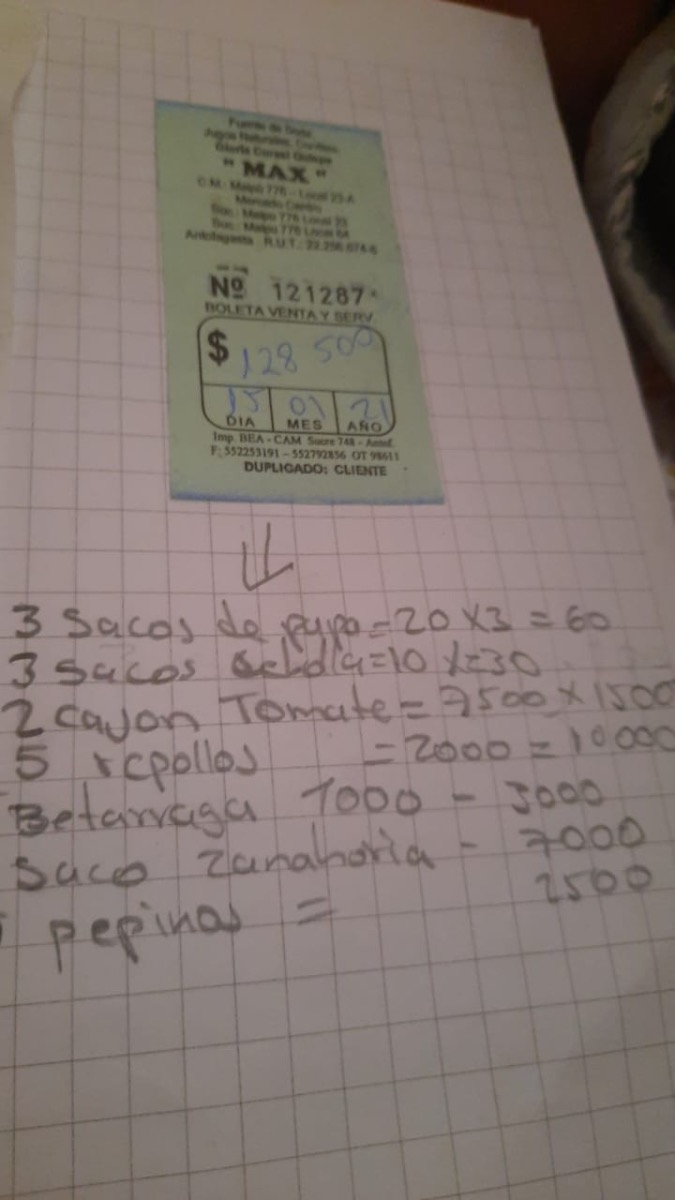 Fuente de Soda
Jugos Naturales,
Gloria
" MAX "
C.M.: Maipú 776 - Local 23-A
Mercado Central
Suc.: Maipu 776 Local 23
Suc.: Maipu 776 Local 64
Antofagasta R.U.T.:
Nº 121287
BOLETA VENTA Y SERV.
$ 128 500
15 01 21
DIA MES AÑO
Imp. BEA - CAM Sucre 748 - Antof.
F: 552253191 - 552792856 OT 98611
DUPLICADO: CLIENTE
3 Sacos de papa = 20 x 3 = 60
3 sacos = 10 x = 30
2 Cajon Tomate = 7500 x 1500
5 repollos = 2000 = 10000
Betarraga 1000 - 3000
Saco Zanahoria - 7000
pepinos = 2500